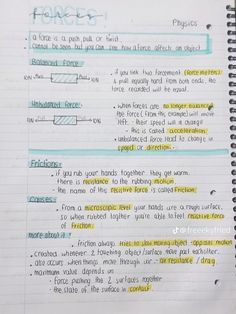 Forces
Physics
• a force is a push, pull or twist.
• cannot be seen but you can see how a force affects an object.
Balanced Force:
10N 10N
• if you link two forcemeters (force meters) &
pull equally hard from both ends, the
force recorded will be equal.
Unbalanced Force:
• when forces are no longer balanced
the force (from this example) will move
left - their speed will change
- this is called acceleration
• unbalanced force lead to change in
speed or direction.
Frictions:
• if you rub your hands together they get warm.
there is resistance to the rubbing motion
• the name of this resistive force is called Friction.
Causes:
• from a microscopic level your hands are a rough surface,
so when rubbed together you're able to feel resistive force
of friction.
more about it:
• friction always tries to slow moving object - opposes motion
• created whenever 2 touching object/surface move past eachother.
• also occurs when things move through air - air resistance / drag.
• maximum value depends on
- force pushing the 2 surfaces together
- the state of the surface in contact.
@freeekyfried